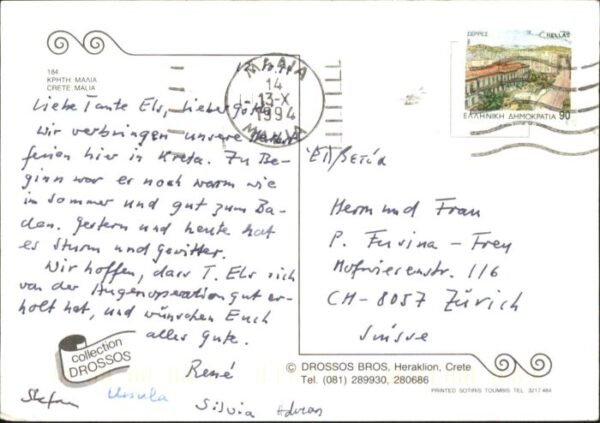 184
ΚΡΗΤΗ ΜΑΛΙΑ
CRETE MALIA
Liebe Tante Els, lieber
wir verbringen unsere
ferien hier in Kreta. Zu Be-
ginn war es noch warm wie
im Sommer und gut zum Ba-
den. Gestern und heute hat
es Sturm und Gewitter.
Wir hoffen, dass T. Els sich
von der Augenoperation gut er-
holt hat, und wünschen Euch
alles Gute.
René
Stefan Ursula Silvia Adrian
collection
DROSSOS
14
13-X
1994
ΣΕΡΡΕΣ HELLAS
ΕΛΛΗΝΙΚΗ ΔΗΜΟΚΡΑΤΙΑ 90
Herrn und Frau
P. Fursina - Frey
Hofwiesenstr. 116
CH-8057 Zürich
Suisse
© DROSSOS BROS, Heraklion, Crete
Tel. (081) 289930, 280686
PRINTED SOTIRIS TOUMBIS TEL. 3217 484